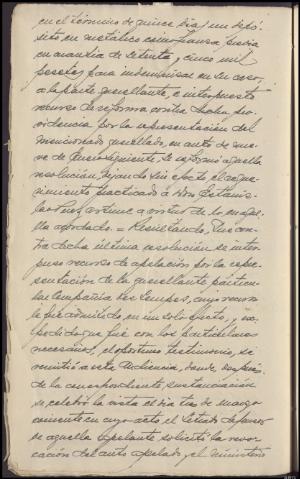 en el término de quince días un depó-
sito en metálico como fianza previa
en cuantía de setenta y cinco mil
pesetas para indemnizar en su caso,
a la parte querellante, e interpuesto
recurso de reforma contra dicha pro-
videncia por la representación del
mencionado querellado, en auto de nue-
ve de Enero siguiente, se reformó aquella
resolución, dejando sin efecto el reque-
rimiento practicado a Don Estanis-
lao a virtud de lo en aque-
lla acordado. = Resultando, Que con-
tra dicha última resolución se inter-
puso recurso de apelación por la repre-
sentación de la querellante particu-
lar Compañía cuyo recurso
le fué admitido en un solo efecto, y ex-
pedido que fué con los particulares
necesarios, el oportuno testimonio, se
remitió a esta Audiencia, donde, después
de la correspondiente sustanciación
se celebró la vista el día tres de marzo
corriente en cuyo acto el Letrado defensor
de aquella apelante solicitó la revo-
cación del auto apelado y el Ministerio